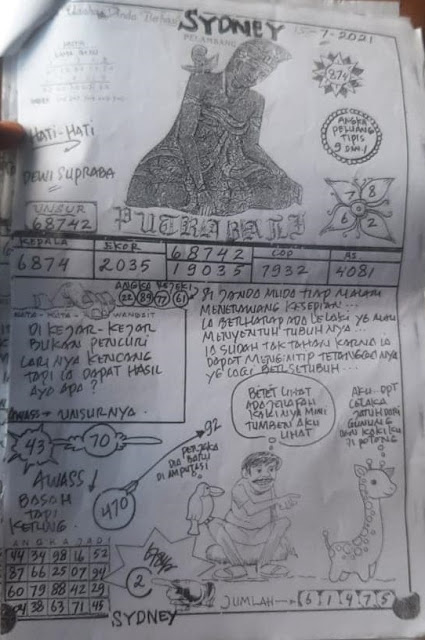 SYDNEY
PELAMBANG
15-7-2021
874
HATI-HATI
DEWI SUPRABA
ANGKA
PELUANG
TIPIS
9 DAN 1
7 8
6 2
UNSUR
68742
PUTRABALI
KEPALA EKOR 68742 COP AS
6874 2035 19035 7932 4081
ANGKA REJEKI
22 89 77 61
MATA - MATA - WANGSIT
DI KEJAR-KEJAR
BUKAN PENCURI
LARINYA KENCANG
TAPI IA DAPAT HASIL
AYO APA ?
AWASS→ UNSURNYA.
SI JANDA MUDA TIAP MALAM
MENERAWANG KESEPIAN...
IA BERHARAP ADA LELAKI YG MAU
MENYENTUH TUBUHNYA...
IA SUDAH TAK TAHAN KARNA IA
MENGINTIP TETANGGANYA
YG LAGI BERSETUBUH...
43
70
92
AWASS
BASAH
TAPI
KERING
470
PERJAKA
DIA BARU
DI AMPUTASI
BETET LIHAT
ADA JERAPAH
KAKINYA MINI
TUMBEN AKU
LIHAT
AKU DPT
CELAKA
JATUH DARI
GUNUNG
KAKIKU
DI POTONG
ANGKA JADI
44 34 98 16 52
87 66 25 07 94
60 79 88 42 29
04 38 63 71 45
2
SYDNEY
JUMLAH → 6 1 4 7 5